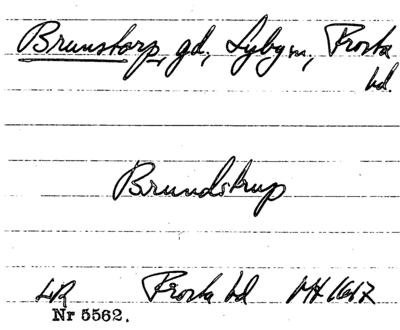 Brunstorp, gd, Lyby sn, Frosta
hd.
Brundstrup
LR Frosta hd
Nr 5562.